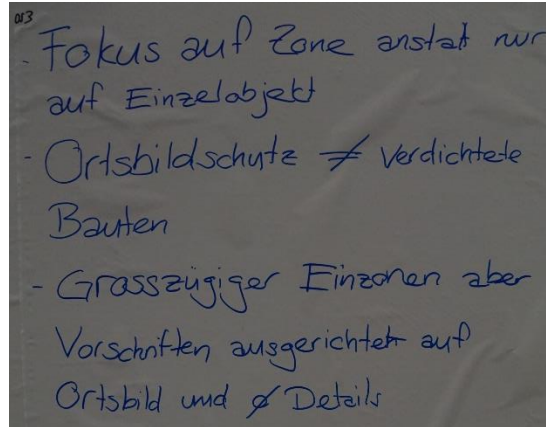 013
- Fokus auf Zone anstat nur
auf Einzelobjekt
- Ortsbildschutz ≠ Verdichtete
Bauten
- Grosszügiger Einzonen aber
Vorschriften ausgerichtet auf
Ortsbild und ∅ Details